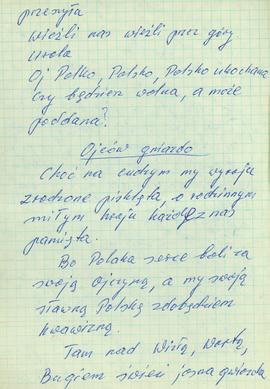 przeszła
Wieźli nas wieźli przez góry
Urala
Oj Polko, Polsko, Polsko ukochana
czy będziesz wolna, a może
poddana?
Ojców gniazdo
Choć na cudzym my wyraju
zrodzone pisklęta, o rodzinnym
miłym kraju każdy z nas
pamięta.
Bo Polaka serce boli za
swoją ojczyzną, a my swoją
sławną Polskę zdobędziem
krwawizną.
Tam nad Wisłą, Wartą,
Bugiem świeci jasna gwiazda